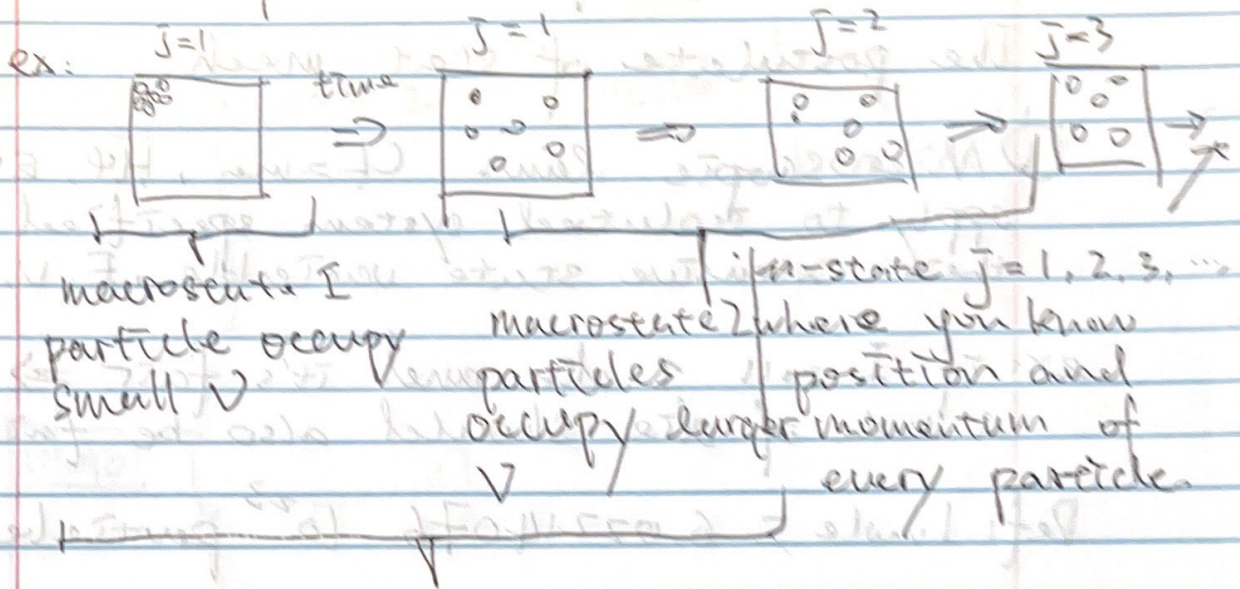 ex:
j=1
j=1
j=2
j=3
time
macrostate I
particle occupy
small V
macrostate 2
particles
occupy larger
V
μ-state j=1, 2, 3, ...
where you know
position and
momentum of
every particle.